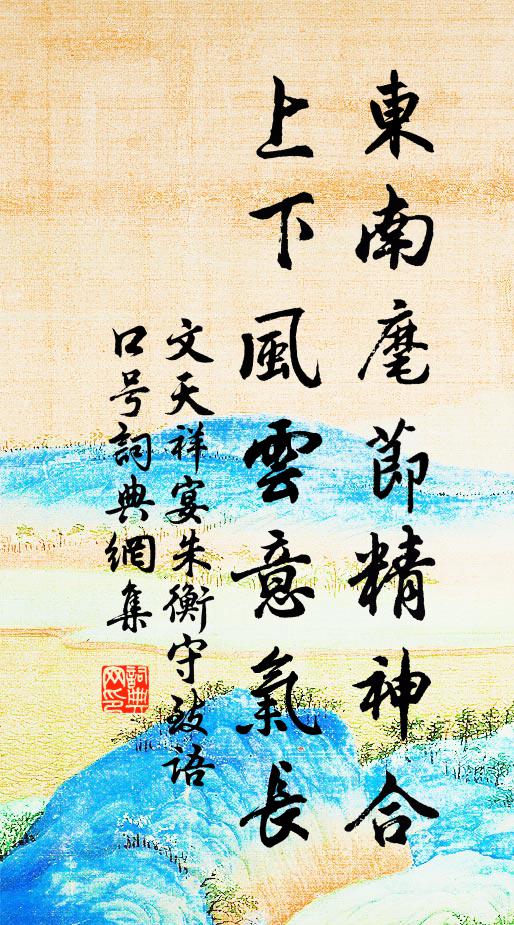 東南麾節精神合
上下風雲意氣長
文天祥宴朱衡守致语
口号詞典網集
詞典网印